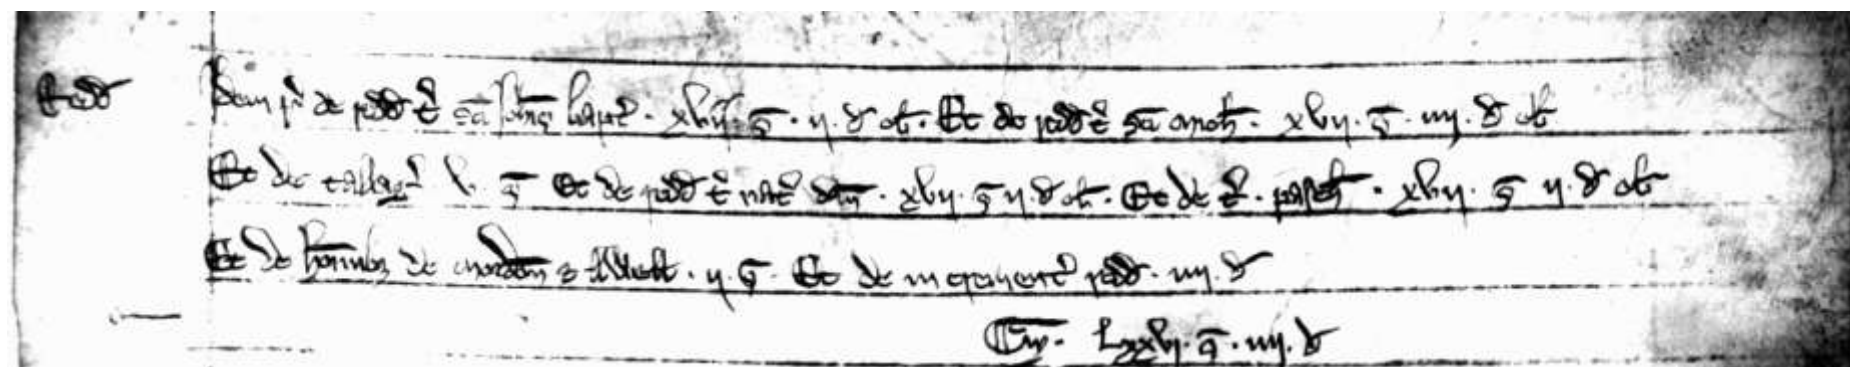 Redd' Idem r' de redd' t' sci Johis bapt'. xvij. s. ij. d ob. Et de redd' t' sci mich. xvij. s. iiij. d ob
Et de tallag' v. s Et de redd' t' nat' dni. xvij. s ij. d ob. Et de t'. pasch. xvij. s ij. d ob
Et de hominibz de mordon z Ewell. ij. s. Et de incremento redd. iiij. d
Sm. Lxxvj. s. iiij. d